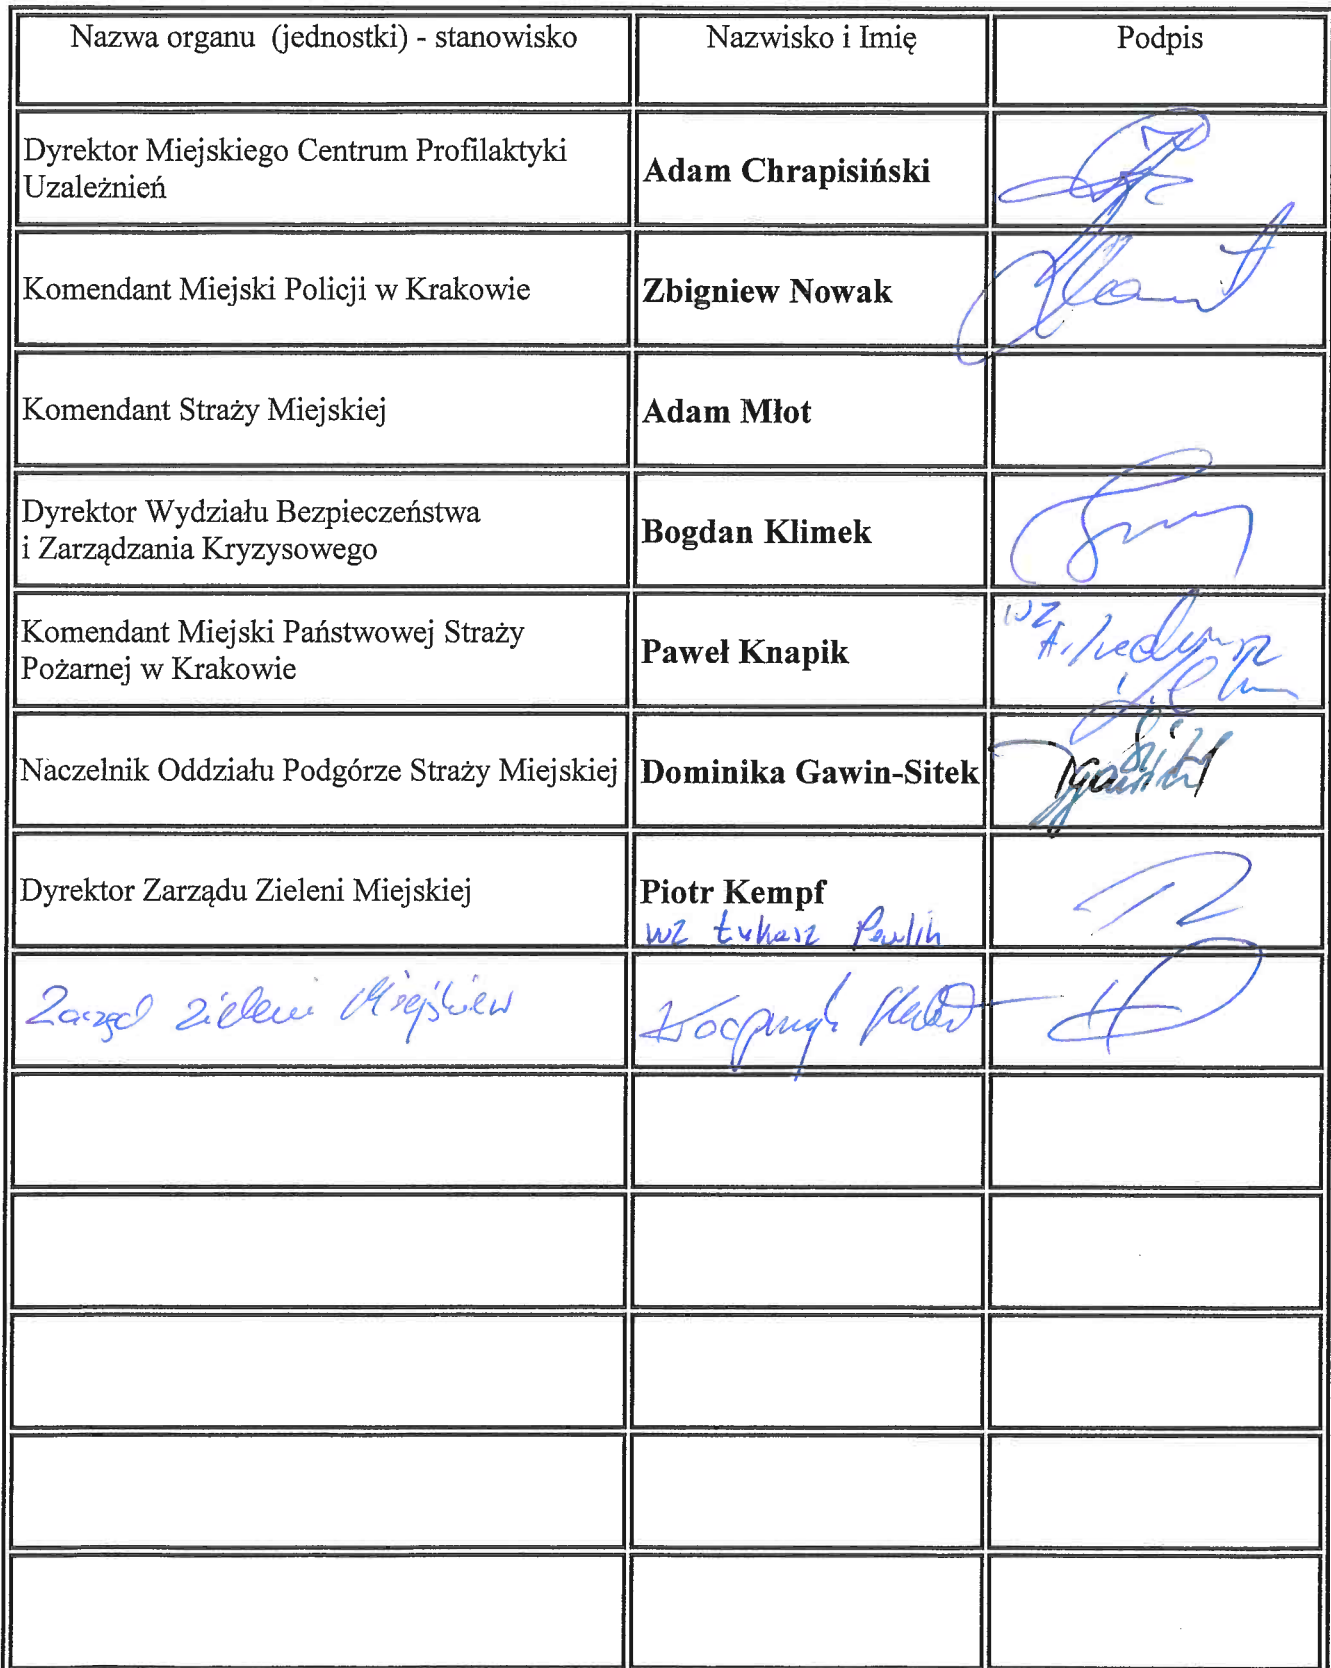 Nazwa organu (jednostki) - stanowisko
Nazwisko i Imię
Podpis
Dyrektor Miejskiego Centrum Profilaktyki
Uzależnień
Adam Chrapisiński
Komendant Miejski Policji w Krakowie
Zbigniew Nowak
Komendant Straży Miejskiej
Adam Młot
Dyrektor Wydziału Bezpieczeństwa
i Zarządzania Kryzysowego
Bogdan Klimek
Komendant Miejski Państwowej Straży
Pożarnej w Krakowie
Paweł Knapik
wz
Naczelnik Oddziału Podgórze Straży Miejskiej
Dominika Gawin-Sitek
Dyrektor Zarządu Zieleni Miejskiej
Piotr Kempf
wz Łukasz Pawlik
Zarząd Zieleni Miejskiew